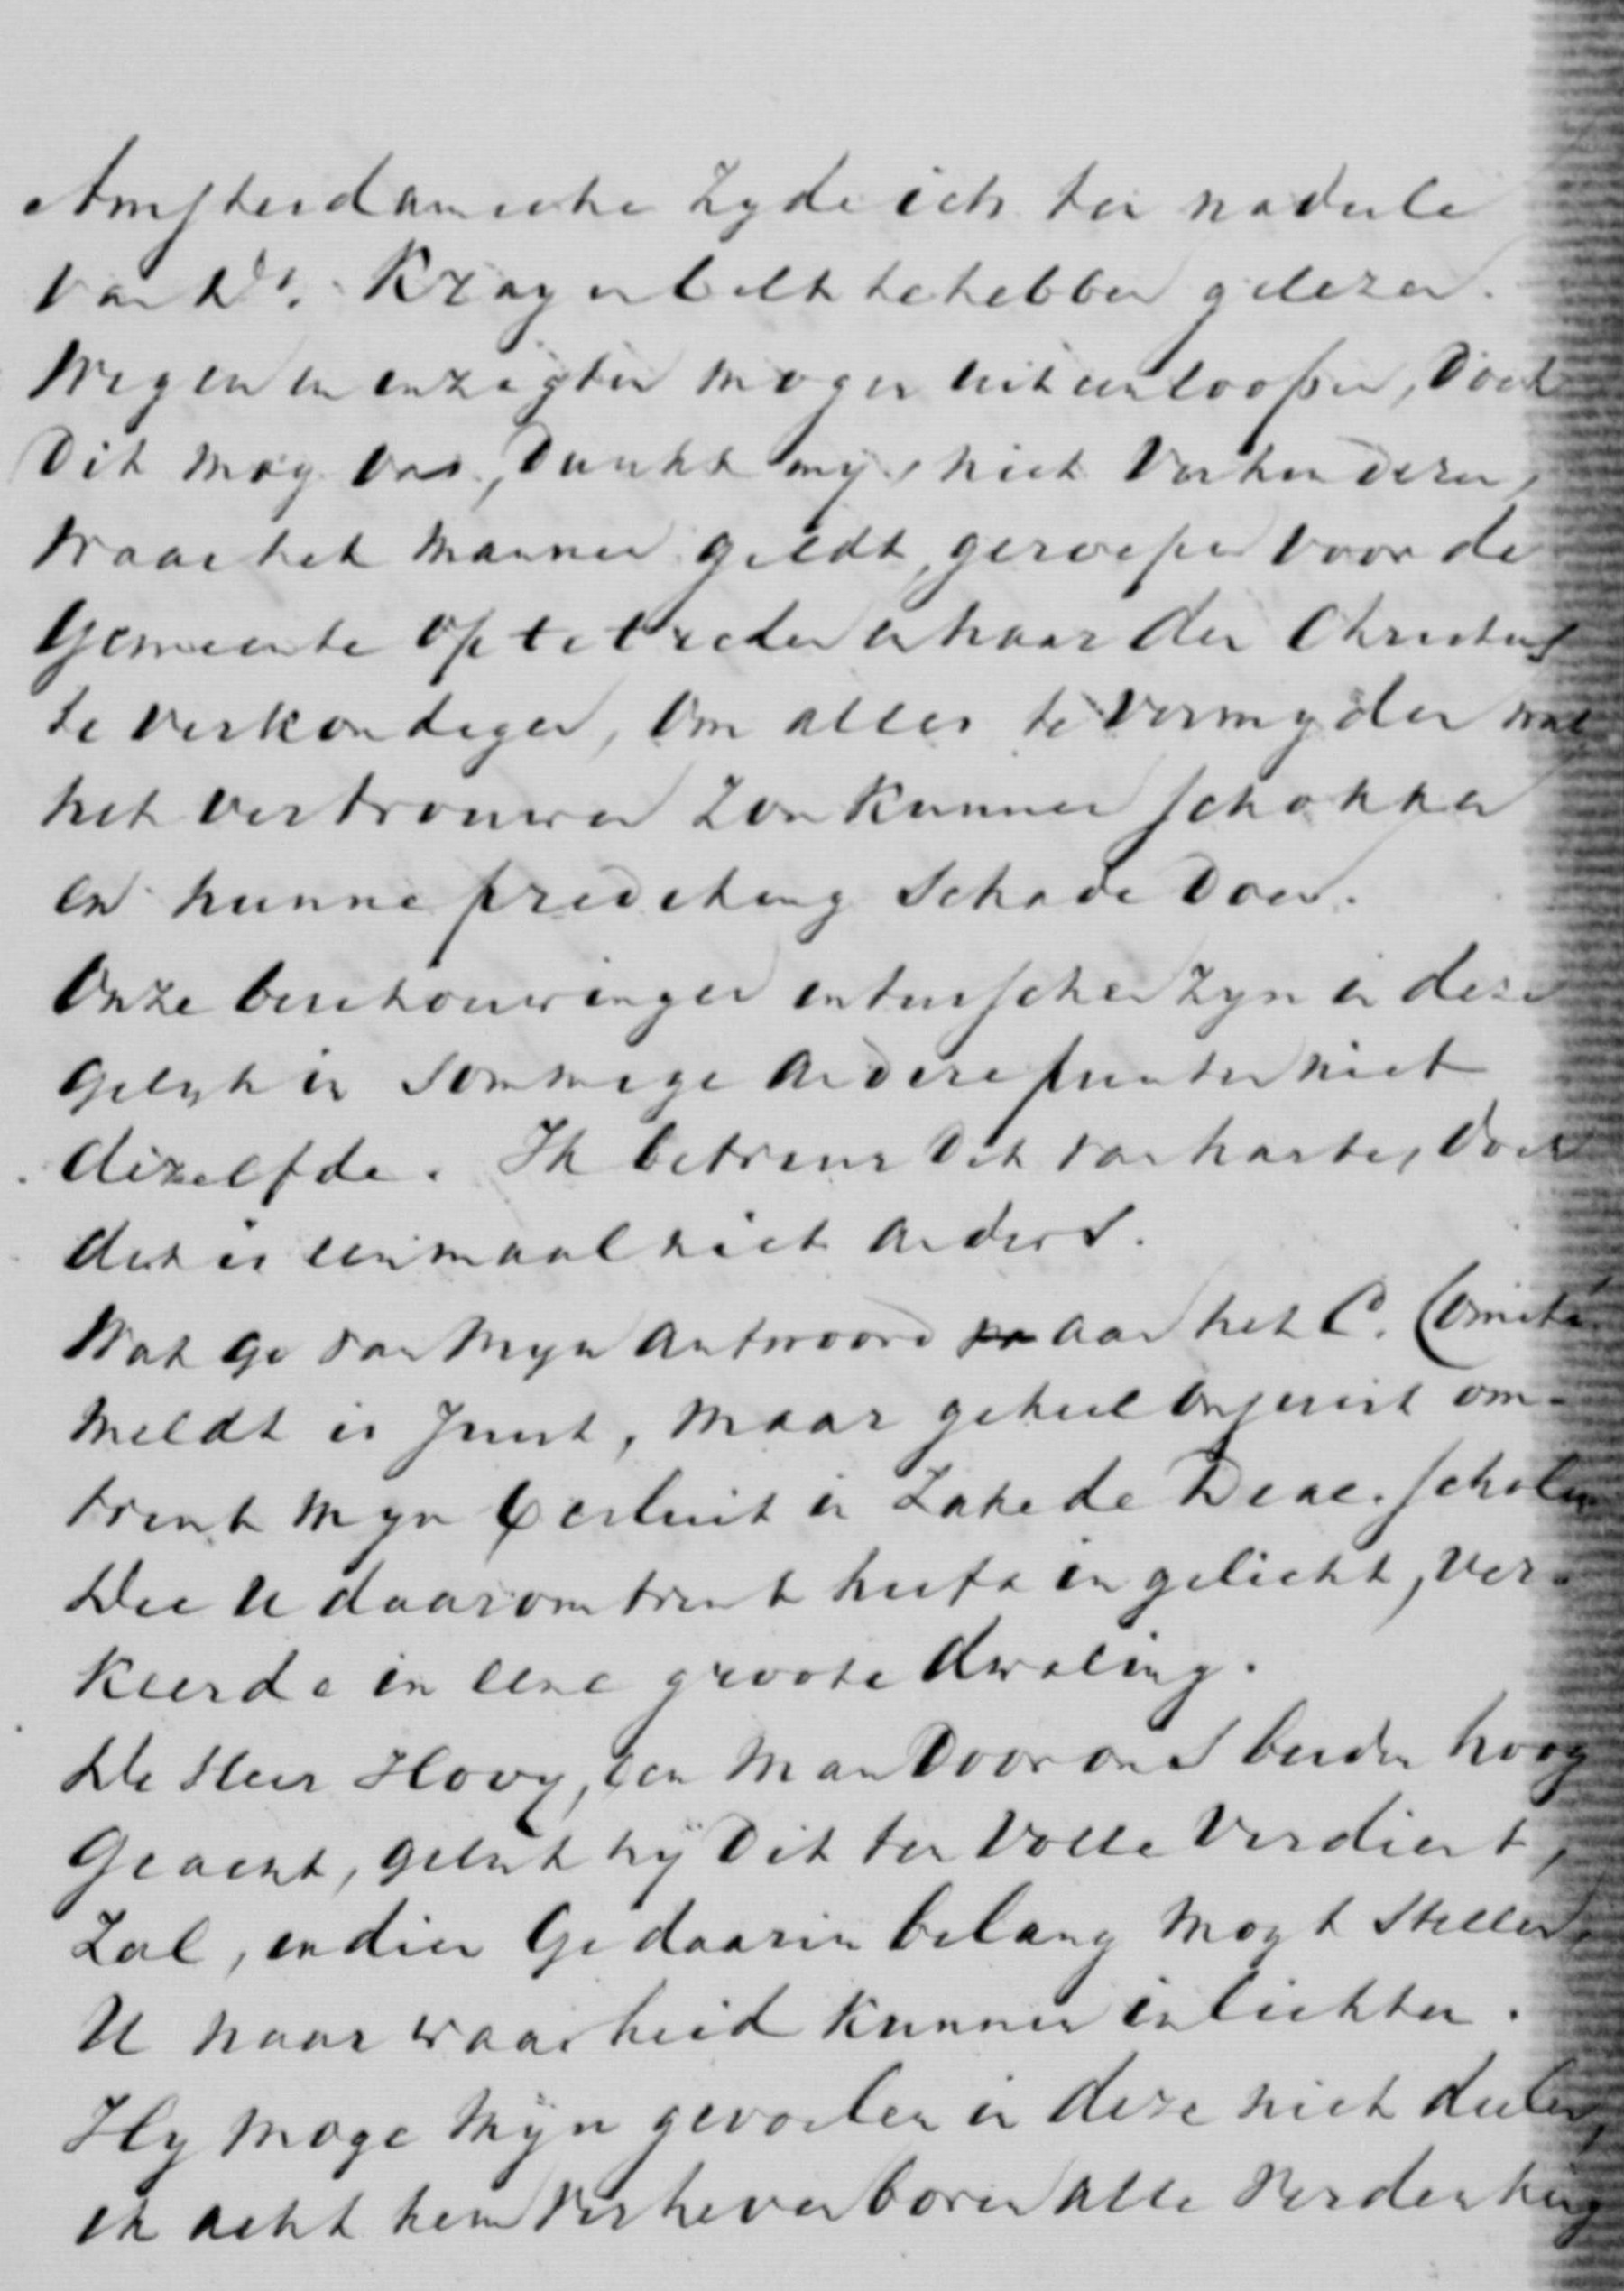 Amsterdamsche Zyde iets ten nadeele
van Ds. Krayenbelt te hebben gelezen.
Wegen en inzigten mogen uiteenloopen, doch
Dit mag ons, dunkt my, niet verhinderen,
Waar het mannen geldt, geroepen voor de
Gemeente op te treden en haar den Christus
te verkondigen, om alles te vermyden wat
het vertrouwen zou kunnen schokken
en hunne prediking schade doen.
Onze beschouwingen intusschen zyn in deze
gelyk in sommige andere punten niet
dezelfde. Ik betreur dit van harte, doch
dit is eenmaal niet anders.
Wat ge van myn antwoord aan het C. Comité
meldt is juist, maar geheel onjuist om-
trent myn besluit in zake de Diac. scholen
Die U daaromtrent heeft ingelicht, ver-
keerde in eene groote dwaling.
De Heer Hovy, een man door ons beiden hoog
geacht, gelyk hij dit ten volle verdient,
Zal, indien Ge daarin belang mogt stellen,
U naar waarheid kunnen inlichten.
Hy moge myn gevoelen in deze niet deelen,
ik acht hem verheven boven alle verdenking